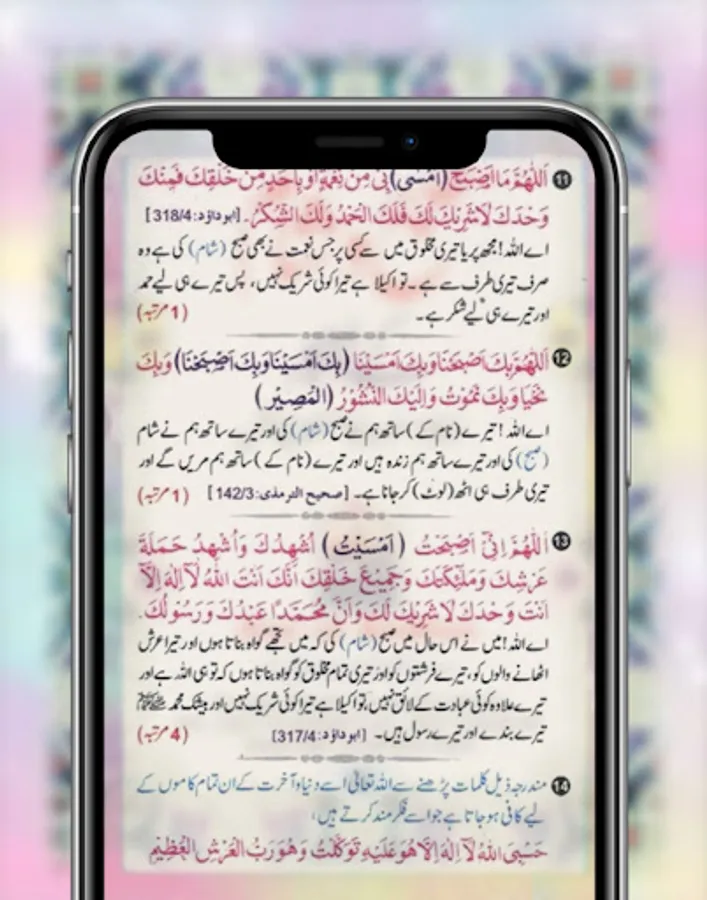 ⓫ اَللّٰهُمَّ مَا اَصْبَحَ (اَمْسٰى) بِىْ مِنْ نِّعْمَةٍ اَوْ بِاَحَدٍ مِّنْ خَلْقِكَ فَمِنْكَ
وَحْدَكَ لَا شَرِيْكَ لَكَ فَلَكَ الْحَمْدُ وَلَكَ الشُّكْرُ۔ [ابو داؤد:318/4]
اے اللہ! مجھ پر یا تیری مخلوق میں سے کسی پر جس نعمت نے بھی صبح (شام) کی ہے وہ
صرف تیری طرف سے ہے۔ تو اکیلا ہے تیرا کوئی شریک نہیں، پس تیرے ہی لیے حمد
اور تیرے ہی لیے شکر ہے۔ (1 مرتبہ)
⓬ اَللّٰهُمَّ بِكَ اَصْبَحْنَا وَبِكَ اَمْسَيْنَا (بِكَ اَمْسَيْنَا وَبِكَ اَصْبَحْنَا) وَبِكَ
نَحْيَا وَبِكَ نَمُوْتُ وَاِلَيْكَ النُّشُوْرُ (الْمَصِيْر)
اے اللہ! تیرے (نام کے) ساتھ ہم نے صبح (شام) کی اور تیرے ساتھ ہم نے شام
(صبح) کی اور تیرے ساتھ ہم زندہ ہیں اور تیرے (نام کے) ساتھ ہم مریں گے اور
تیری طرف ہی اٹھ (لوٹ) کر جانا ہے۔ [صحیح الترمذی:142/3] (1 مرتبہ)
⓭ اَللّٰهُمَّ اِنِّىْٓ اَصْبَحْتُ (اَمْسَيْتُ) اُشْهِدُكَ وَاُشْهِدُ حَمَلَةَ
عَرْشِكَ وَمَلٰٓئِكَتَكَ وَجَمِيْعَ خَلْقِكَ اَنَّكَ اَنْتَ اللّٰهُ لَآ اِلٰهَ اِلَّآ
اَنْتَ وَحْدَكَ لَا شَرِيْكَ لَكَ وَاَنَّ مُحَمَّدًا عَبْدُكَ وَرَسُوْلُكَ۔
اے اللہ! میں نے اس حال میں صبح (شام) کی کہ میں تجھے گواہ بناتا ہوں اور تیرا عرش
اٹھانے والوں کو، تیرے فرشتوں کو اور تیری تمام مخلوق کو گواہ بناتا ہوں کہ تو ہی اللہ ہے اور
تیرے علاوہ کوئی عبادت کے لائق نہیں، تو اکیلا ہے تیرا کوئی شریک نہیں اور بیشک محمد ﷺ
تیرے بندے اور تیرے رسول ہیں۔ [ابو داؤد:317/4] (4 مرتبہ)
⓮ مندرجہ ذیل کلمات پڑھنے سے اللہ تعالیٰ اسے دنیا و آخرت کے ان تمام کاموں کے
لیے کافی ہو جاتا ہے جو اسے فکر مند کرتے ہیں،
حَسْبِىَ اللّٰهُ لَآ اِلٰهَ اِلَّا هُوَ عَلَيْهِ تَوَكَّلْتُ وَهُوَ رَبُّ الْعَرْشِ الْعَظِيْمِ